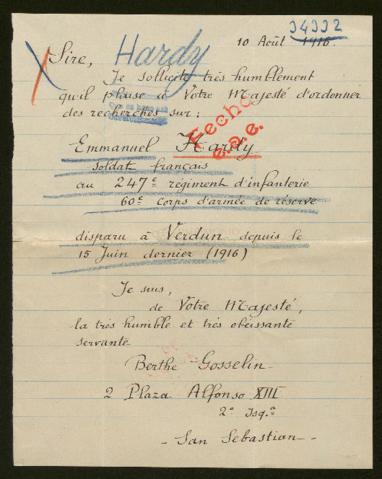 34332
Hardy
10 Août 1916.
Sire,
Je sollicite très humblement
qu'il plaise à Votre Majesté d'ordonner
des recherches sur :
Fecho
e.a.e.
Emmanuel Hardy
soldat français
au 247e régiment d'infanterie
60e corps d'armée de réserve
disparu à Verdun depuis le
15 Juin dernier (1916)
Je suis,
de Votre Majesté,
la très humble et très obéissante
servante
Berthe Gosselin
2 Plaza Alfonso XIII
2º Isqª
- San Sebastian -